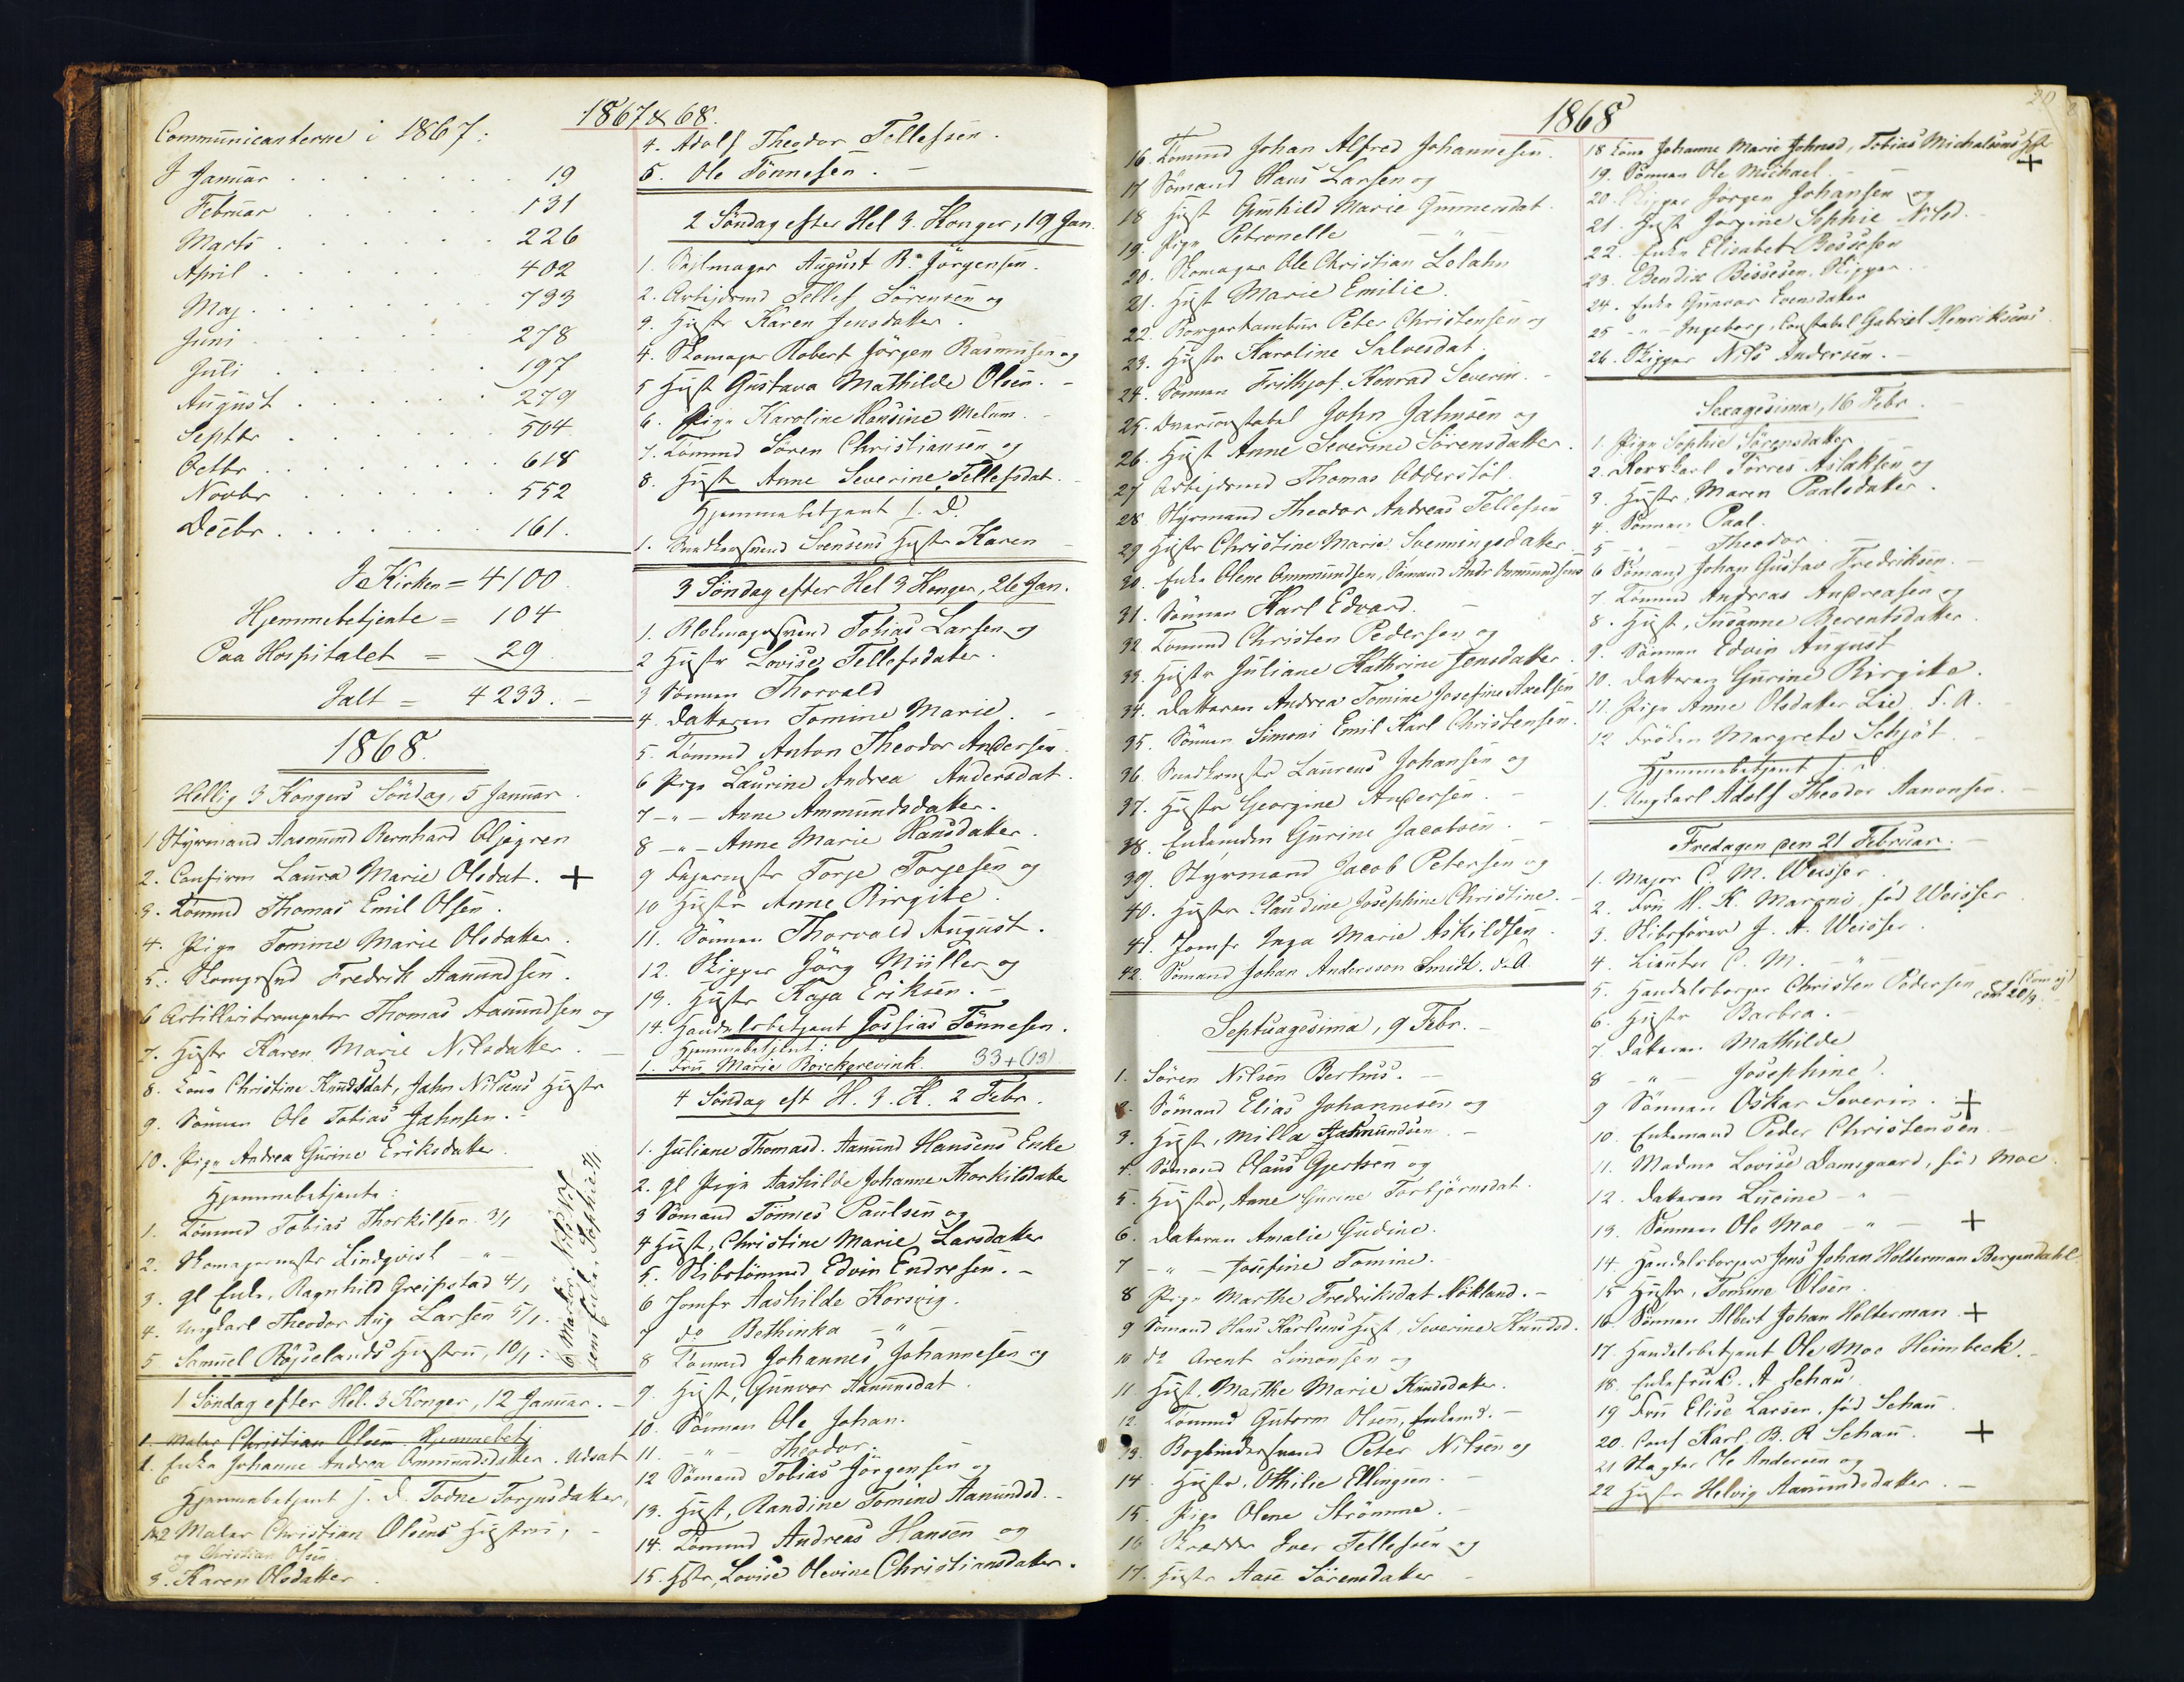 1867 & 68.
Communicanterne i 1867:
I Januar 19
Februar 131
Marts 226
April 402
Maj 733
Juni 278
Juli 197
August 279
Septbr 504
Octbr 618
Novbr 552
Decbr 161.
I Kirken = 4100
Hjemmebetjente = 104
Paa Hospitalet = 29
Ialt = 4233. -
1868.
Hellig 3 Kongers Søndag, 5 Januar.
1 Styrmand Aasmund Bernhard
2. Confirm Laura Marie Olsdat. +
3. Tømmd Thomas Emil Olsen.
4. Pige Tomine Marie Olsdatter.
5. Fredrik Aanundsen.
6 Artilleritrompeter Thomas Aanundsen og
7. Hustr Karen Marie Nilsdatter.
8. Kone Christine Knudsdat, Jahn Nilsens Hustr
9. Sønnen Ole Tobias Jahnsen. -
10. Pige Andrea Gurine Eriksdatter.
Hjemmebetjente:
1. Tømmd Tobias Thorkilsen 3/1
2. Skomagermstr Lindqvist - " -
3. gl Enke, Ragnhild Greipstad 4/1
4. Ungkarl Theodor Aug Larsen 5/1.
5 Samuel Røiselands Hustru, 10/1.
1 Søndag efter Hel. 3 Konger, 12 Januar. -
1. Maler Christian Olsen Hjemmebetj
1. Enke Johanne Andrea Ommundsdatter. Udsat
Hjemmebetjent s. D. Todne Torjusdatter,
2 Maler Christian Olsens Hustru, -
og Christian Olsen
3. Karen Olsdatter.
4. Adolf Theodor Tellefsen.
5. Ole Tönnesen. -
2 Søndag efter Hel 3. Konger, 19 Jan.
1. Sejlmager August B. Jörgensen.
2. Arbejdsmd Tellef Sörensen og
3. Hustr Karen Jensdatter.
4. Skomager Robert Jörgen Rasmusen og
5 Hust Gustava Mathilde Olsen. -
6. Pige Karoline Hansine Melum. -
7. Tömmd Sören Christiansen og
8. Hustr Anne Severine Tellefsdat.
Hjemmebetjent s. D.
1. Snedkersvend Svensens Hustr Karen -
3 Søndag efter Hel 3 Konger, 26 Jan.
1. Blokmagersvend Tobias Larsen og
2 Hustr Lovise Tellefsdater.
3 Sønnen Thorvald
4. Datteren Tomine Marie. -
5. Tömmd Anton Theodor Andersen.
6 Pige Laurine Andrea Andersdat.
7 - " - Anne Ammundsdatter.
8 - " - Anne Marie Hansdatter.
9 Torje Torjesen og
10 Hustr Anne Birgite.
11. Sönnen Thorvald August.
12. Skipper Jörg Müller og
13. Hustr Kaja Eriksen. -
14. Handelsbetjent Jossias Tönnesen.
Hjemmebetjent:
1. Fru Marie Borchgrevink. 33 + (13)
4 Söndag eft H. 3. K. 2 Febr.
1. Juliane Thomasd. Aanund Hansens Enke
2. gl Pige Aashilde Johanne Thorkildsdatte
3 Sömand Tönnes Paulsen og
4 Hust, Christine Marie Larsdatter
5. Skibstömmd Edvin Endresen. -
6 Jomfr Aashilde Korsvig.
7 do Bethinka - " -
8 Tömmd Johannes Johannesen og
9. Hust, Gunvor Aanunsdat.
10. Sönnen Ole Johan.
11. - " - Theodor.
12 Sömand Tobias Jörgensen og
13. Hust, Randine Tomine Aanundsd. -
14. Tömmd Andreas Hansen og
15. Hstr, Lovise Olevine Christiansdatter.
1868
16. Tömmd Johan Alfred Johannesen.
17 Sömand Hans Larsen og
18 Hust Gunhild Marie Gunnersdat.
19. Pige Petronelle - " -
20. Skomager Ole Christian
21. Hust Marie Emilie.
22. Peter Christensen og
23. Hustr Karoline Salvesdat.
24. Sønnen Frithjof Konrad Severin. -
25. John Jahnsen og
26. Hust Anne Severine Sörensdatter.
27 Arbejdsmd Thomas Odderstöl.
28. Styrmand Theodor Andreas Tellefsen
29 Hustr Christine Marie Svenningsdatter
30. Enke Olene Ommundsen, Sömand Andr Ommundsens
31. Sönnen Karl Edvard. -
32 Tömmd Christen Pedersen og
33. Hustr Juliane Kathrine Jensdatter.
34. Datteren Andrea Tomine Josefine Axelsen
35. Sönnen Simoni Emil Karl Christensen.
36. Laurens Johansen og
37. Hustr Georgine Andersen. -
38. Gurine Jacobsen. -
39. Styrmand Jacob Petersen og
40. Hustr Claudine Josephine Christine. -
41. Jomfr Inga Marie Askildsen.
42. Sömand Johan Andersson Smidt. s. A.
Septuagesima, 9 Febr. -
1. Sören Nilsen Berhus. -
2. Sömand Elias Johannesen og
3. Hust, Milla Aasmundsen -
4. Sömand Olaus Gjertsen og
5. Hustr, Anne Gurine Torbjörnsdat.
6. Datteren Amalie Gudine.
7 - " - Josefine Tomine. -
8 Pige Marthe Fredriksdat Nökland. -
9 Sömand Hans Karlsens Hust, Severine Knudsd.
10 do Arent Simonsen og
11. Hust, Marthe Marie Knudsdater.
12. Tömmd Gutorm Olsen, Enkemd. -
13. Bogbindersvend Peter Nilsen og
14. Hustr, Othilie Ellingsen. -
15. Pige Olene Strömme. -
16 Skrædder Iver Tellefsen og
17. Hustr Aase Sörensdatter -
18 Kone Johanne Marie Johnsd, Tobias Michalsens Hst
19. Sönnen Ole Michael. - +
20. Skipper Jörgen Johansen og
21. Hust Jörgine Sophie Nilsd. -
22. Enke Elisabet Bessesen
23. Bendix Bessesen, Skipper. -
24. Enke Gunvor Evensdatter
25 - " - Ingeborg, Constabel Gabriel Henriksens
26. Skipper Nils Andersen. -
Sexagesima, 16 Febr. -
1. Pige Sophie Sörensdatter -
2. Torres Aslaksen og
3. Hustr, Maren Paalsdatter.
4. Sönnen Paal.
5 - " - Theodor. -
6 Sömand Johan Gustav Fredriksen. -
7. Tömmd Andreas Andreasen og
8. Hust, Susanne Berentsdatter.
9. Sönnen Edvin August
10. Datteren Gurine Birgite.
11. Pige Anne Olsdatter Lie. s. A. -
12 Fröken Margrete Schjöt. -
Hjemmebetjent s. D.
1. Ungkarl Adolf Theodor Aanonsen. -
Fredagen den 21 Februar. -
1. Major C. M. Weisser.
2. Fru M. K. Mar, föd Weisser
3. Skibsförer J. A. Weisser.
4. Lieutn C. M. - " -
5. Handelsborger Christen Pedersen
6. Hustr Barbra. -
7 Datteren Mathilde
8 - " - Josephine.
9 Sönnen Oskar Severin. +
10. Enkemand Peder Christensen
11. Madme Lovise Damsgaard, föd Moe.
12. Datteren Lucine - " -
13. Sönnen Ole Moe - " - +
14. Handelsborger Jens Johan Holterman Bergendahl.
15 Hustr, Tomine Olsen.
16 Sönnen Albert Johan Holterman +
17. Handelsbetjent Ole Moe Heimbeck. -
18. Enkefru C. A. Schau.
19 Fru Elise Larsen, föd Schau.
20. Conf Karl B. R. Schau. +
21 Slagter Ole Andersen og
22 Hustr Helvig Aanundsdatter. -